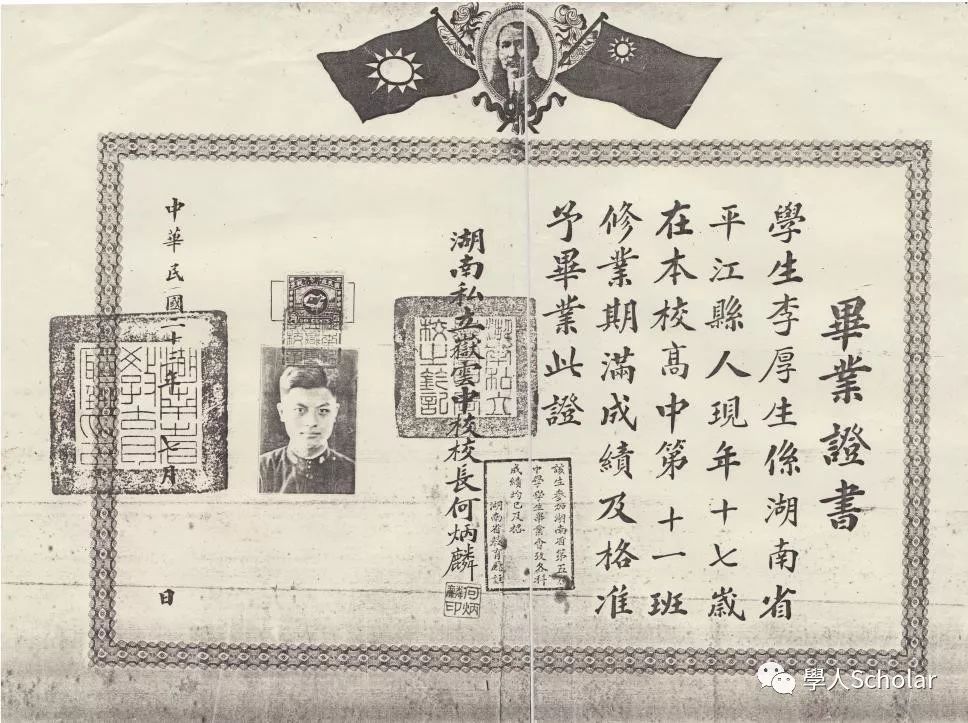 畢業證書
學生李厚生係湖南省
平江縣人現年十七歲
在本校高中第十一班
修業期滿成績及格准
予畢業此證
該生參加湖南省第五
中學學生畢業會攷各科
成績均已及格
湖南省教育廳註
湖南私立嶽雲中校校長何炳麟
何炳麟印
中華民國二十年月日
學人Scholar